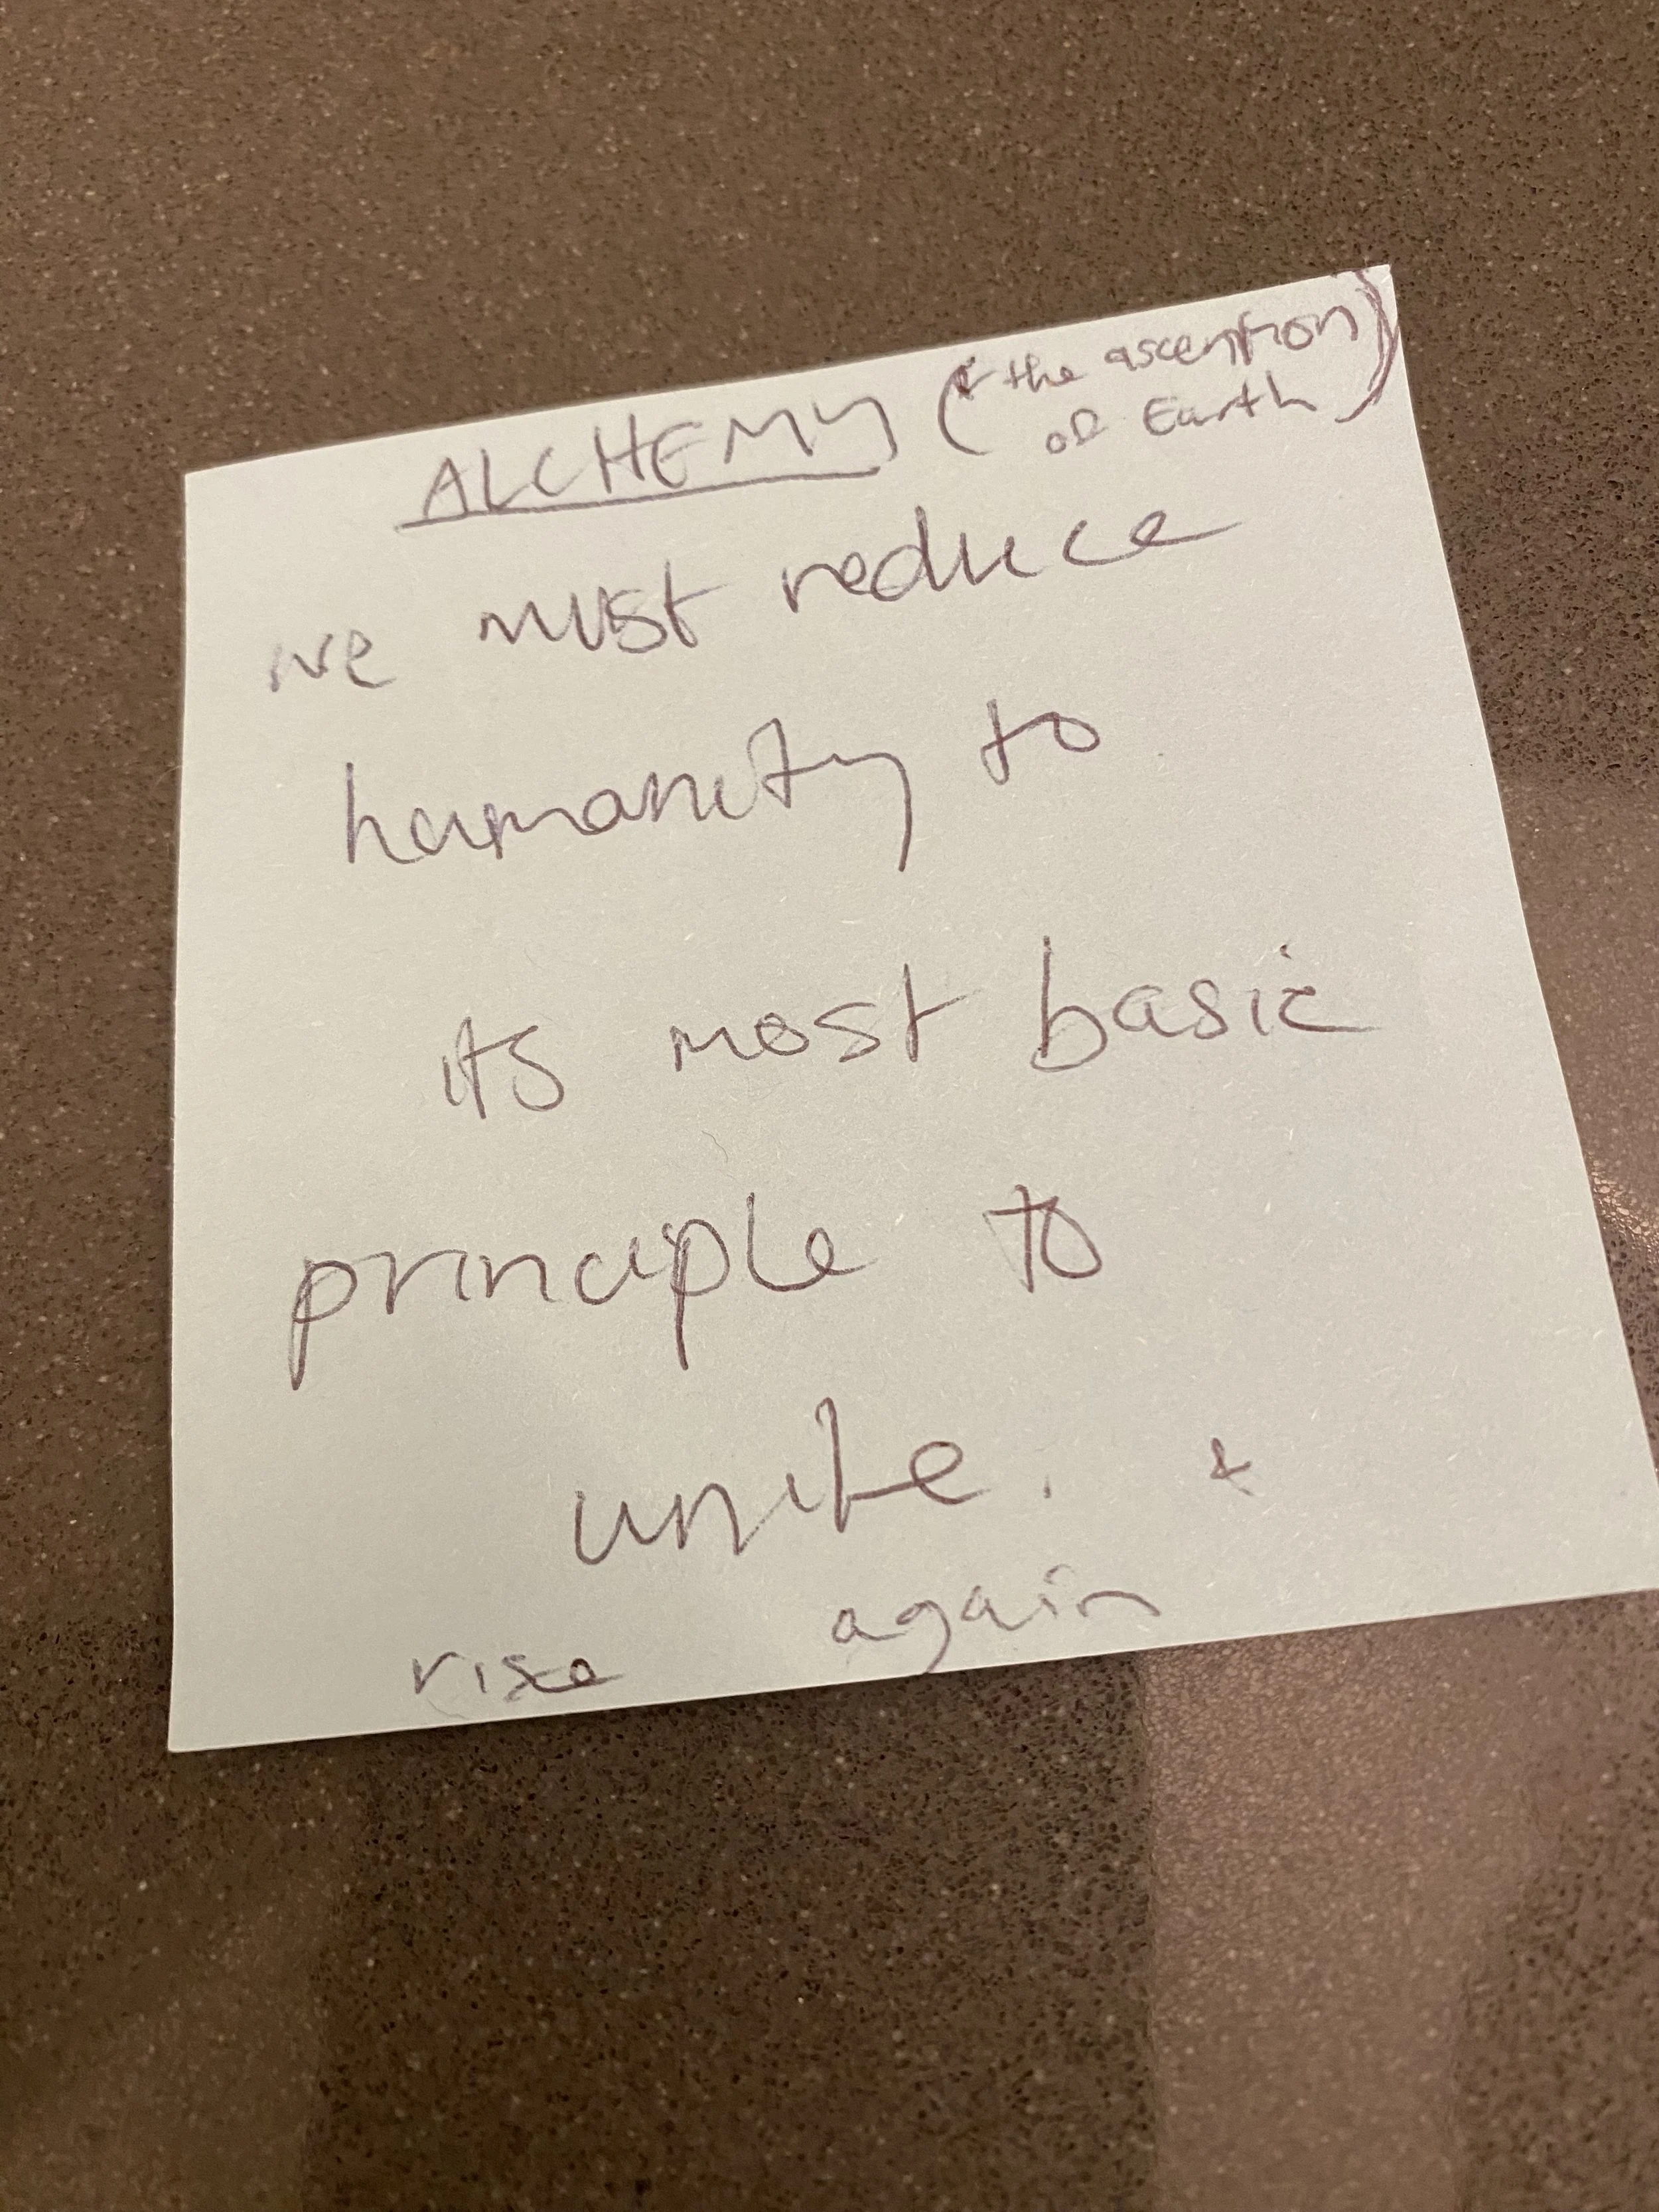 ALCHEMY (& the ascention)
of Earth)
we must reduce
humanity to
its most basic
principle to
unite. &
rise again